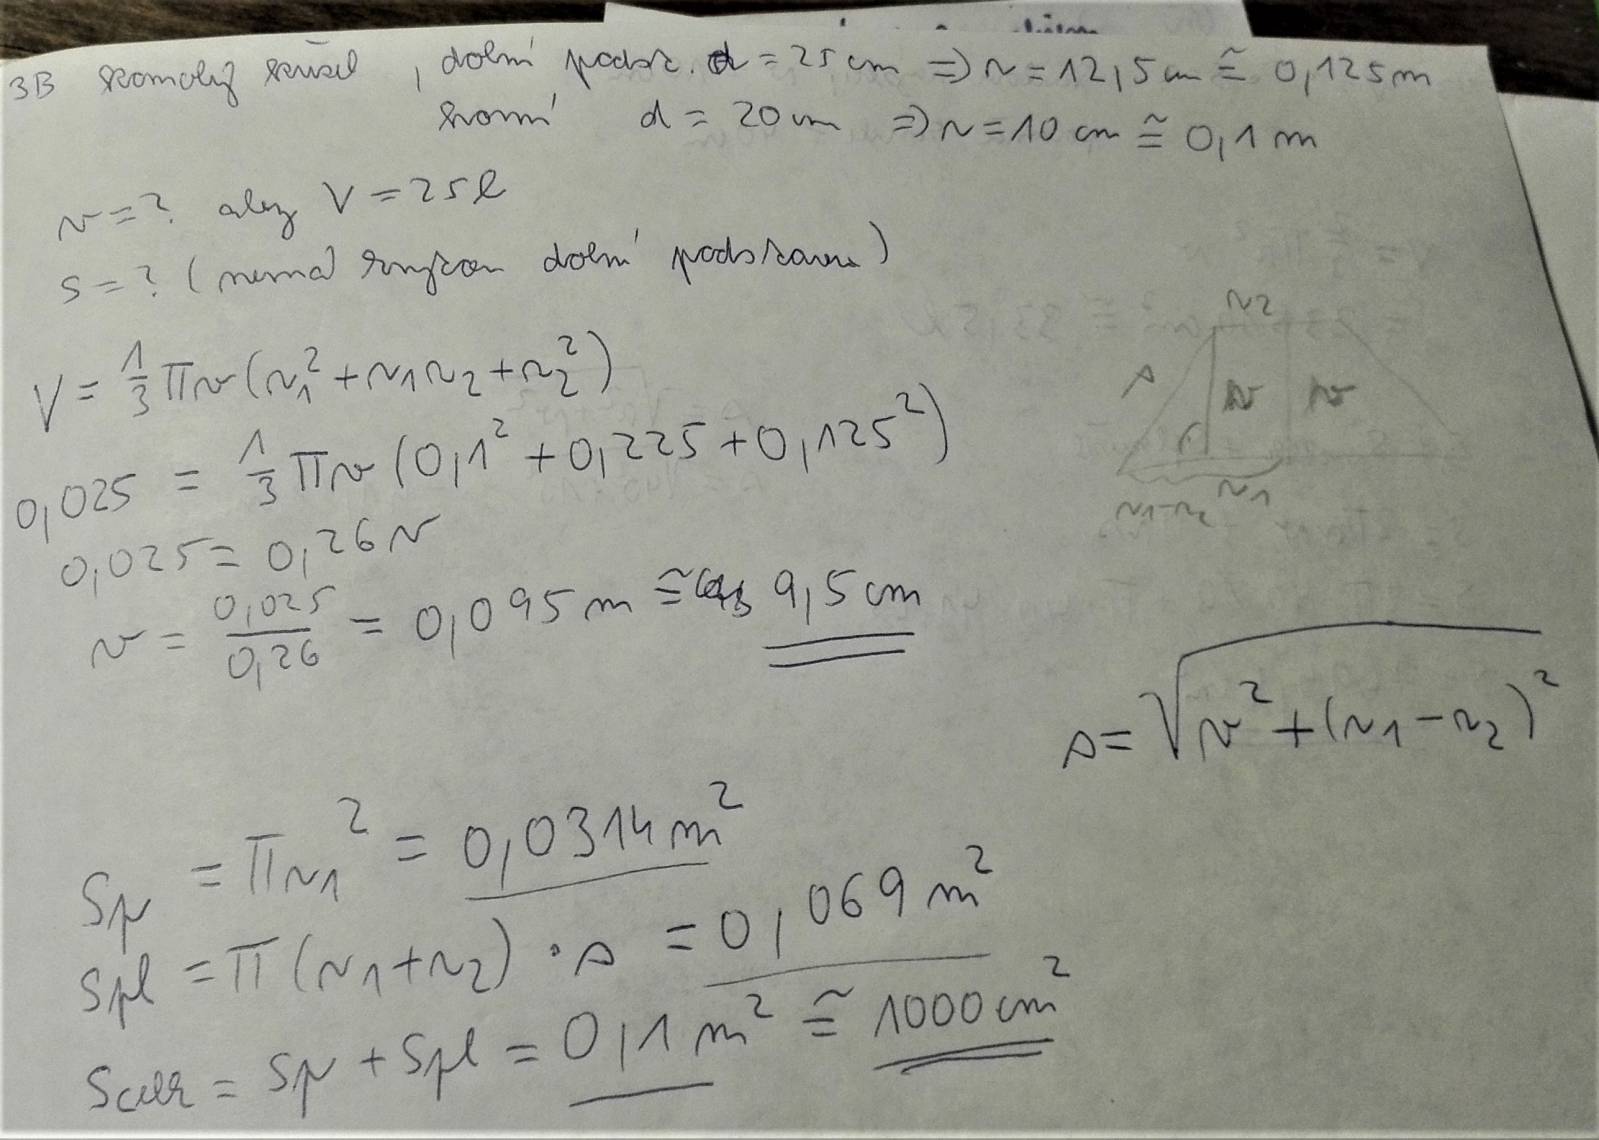 3B komolý kužel, dolní podst. d = 25 cm ⇒ r = 12,5 cm ≅ 0,125 m
horní d = 20 cm ⇒ r = 10 cm ≅ 0,1 m
v = ? aby V = 25 l
S = ? (nemá dolní podstavu)
V = 1/3 π v (r1² + r1 r2 + r2²)
0,025 = 1/3 π v (0,1² + 0,225 + 0,125²)
0,025 = 0,26 v
v = 0,025/0,26 = 0,095 m ≅ 9,5 cm
r2
s v v
r1-r2 r1
s = √(v² + (r1 - r2)²)
Sp = π r1² = 0,0314 m²
Spl = π (r1 + r2) · s = 0,069 m²
Scelk = Sp + Spl = 0,1 m² ≅ 1000 cm²